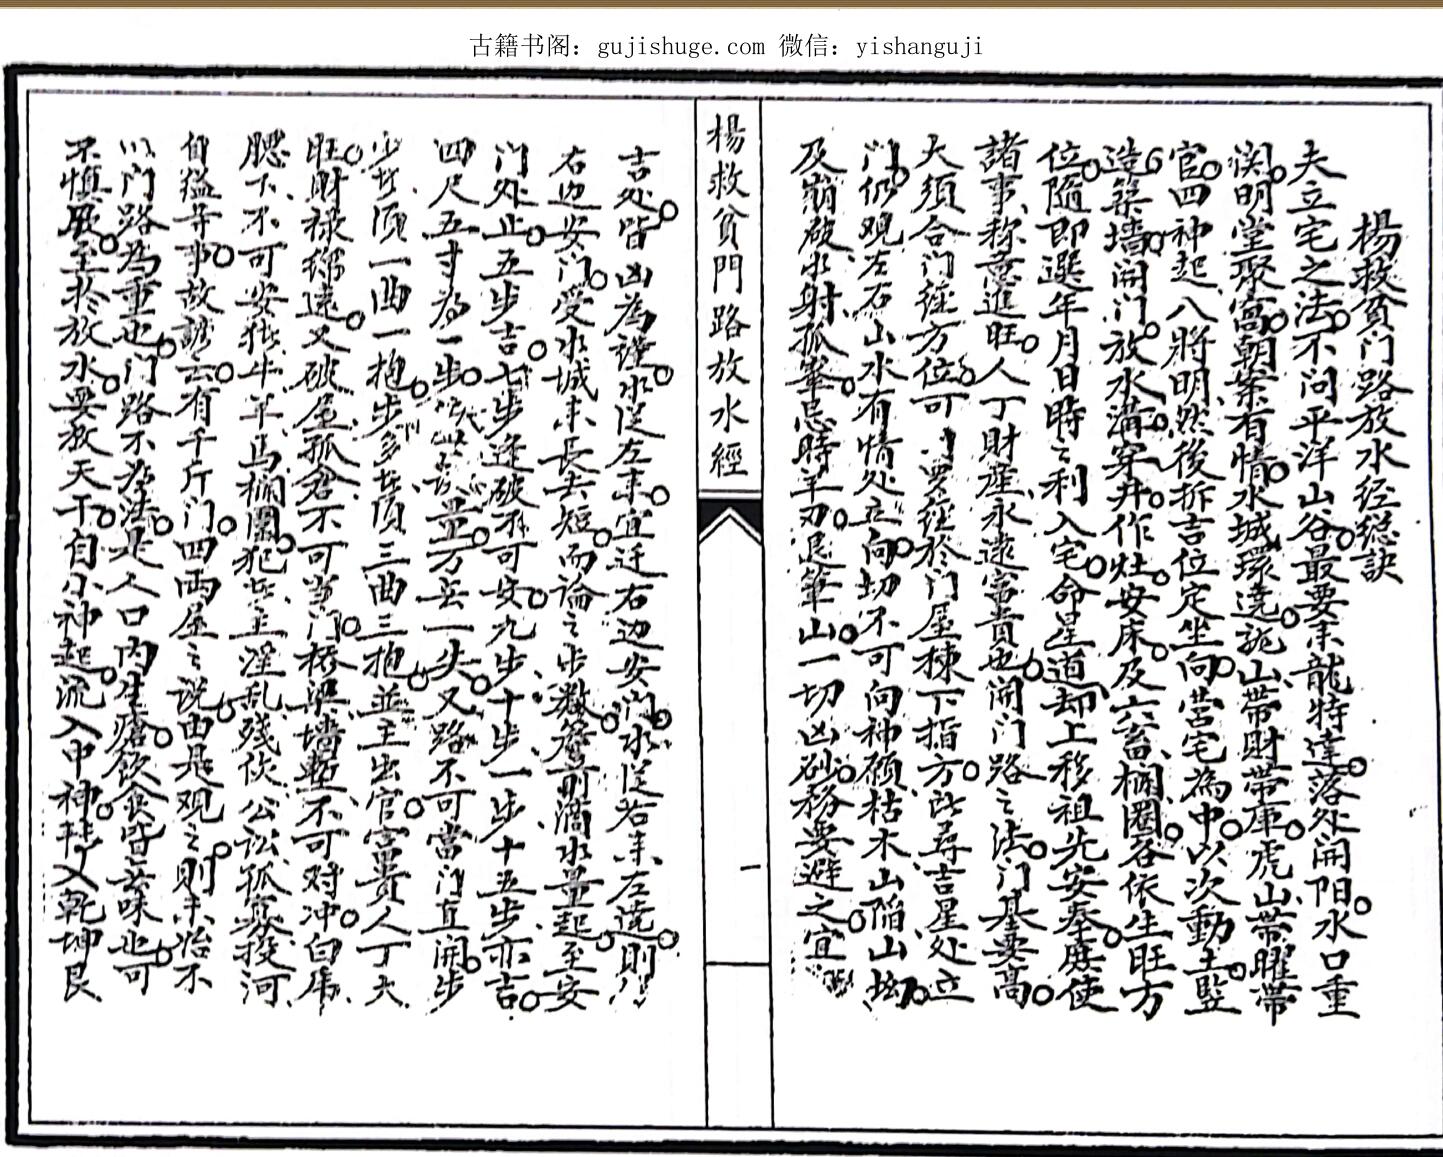 古籍书阁：gujishuge.com 微信：yishanguji
楊救貧门路放水经総訣
夫立宅之法不问平洋山谷最要来龍特達落处開阳水口重
関明堂聚窩朝案有情水城環遶龍山帶財帶庫虎山帶曜帶
官四神起八將明然後拆吉位定坐向营宅為中以次動土竖
造築墻開门放水溝穿井作灶安床及六畜欄圈各依生旺方
位隨即選年月日時之利入宅命星道却上移祖先安奉庶使
諸事称意進旺人丁財産永遠富貴也開门路之法门基要高
大須合门徑方位可门要經於门屋棟下指方此尋吉星处立
门仍观左右山水有情处立向切不可向神顧枯木山陷山坳
及崩破水射孤峯忌時羊刃退筆山一切凶砂務要避之宜
楊救貧門路放水經
一
吉处皆凶為謹水従左来宜迁右边安门水従右来左遶則
右边安门受水城来長去短而論之步数簷前滴水量起至安
门处止五步吉七步逢破不可安九步十步一步十五步亦吉
四尺五寸為一步量万无一失又路不可當门直開步
頂一曲一抱步多頂三曲三抱並主出官富貴人丁大
旺財禄綿遠又破屋孤倉不可当门桥梁墙塹不可对冲白虎
腮下不可安猪牛羊馬欄圈犯此主淫乱殘伤公訟孤寡投河
自縊等事故諺云有千斤门四両屋之说由是观之則不怡不
以门路為重也门路不為法是人口内生瘡飲食皆無味也可
不慎哉至於放水要放天干自小神起流入中神中神入乾坤艮